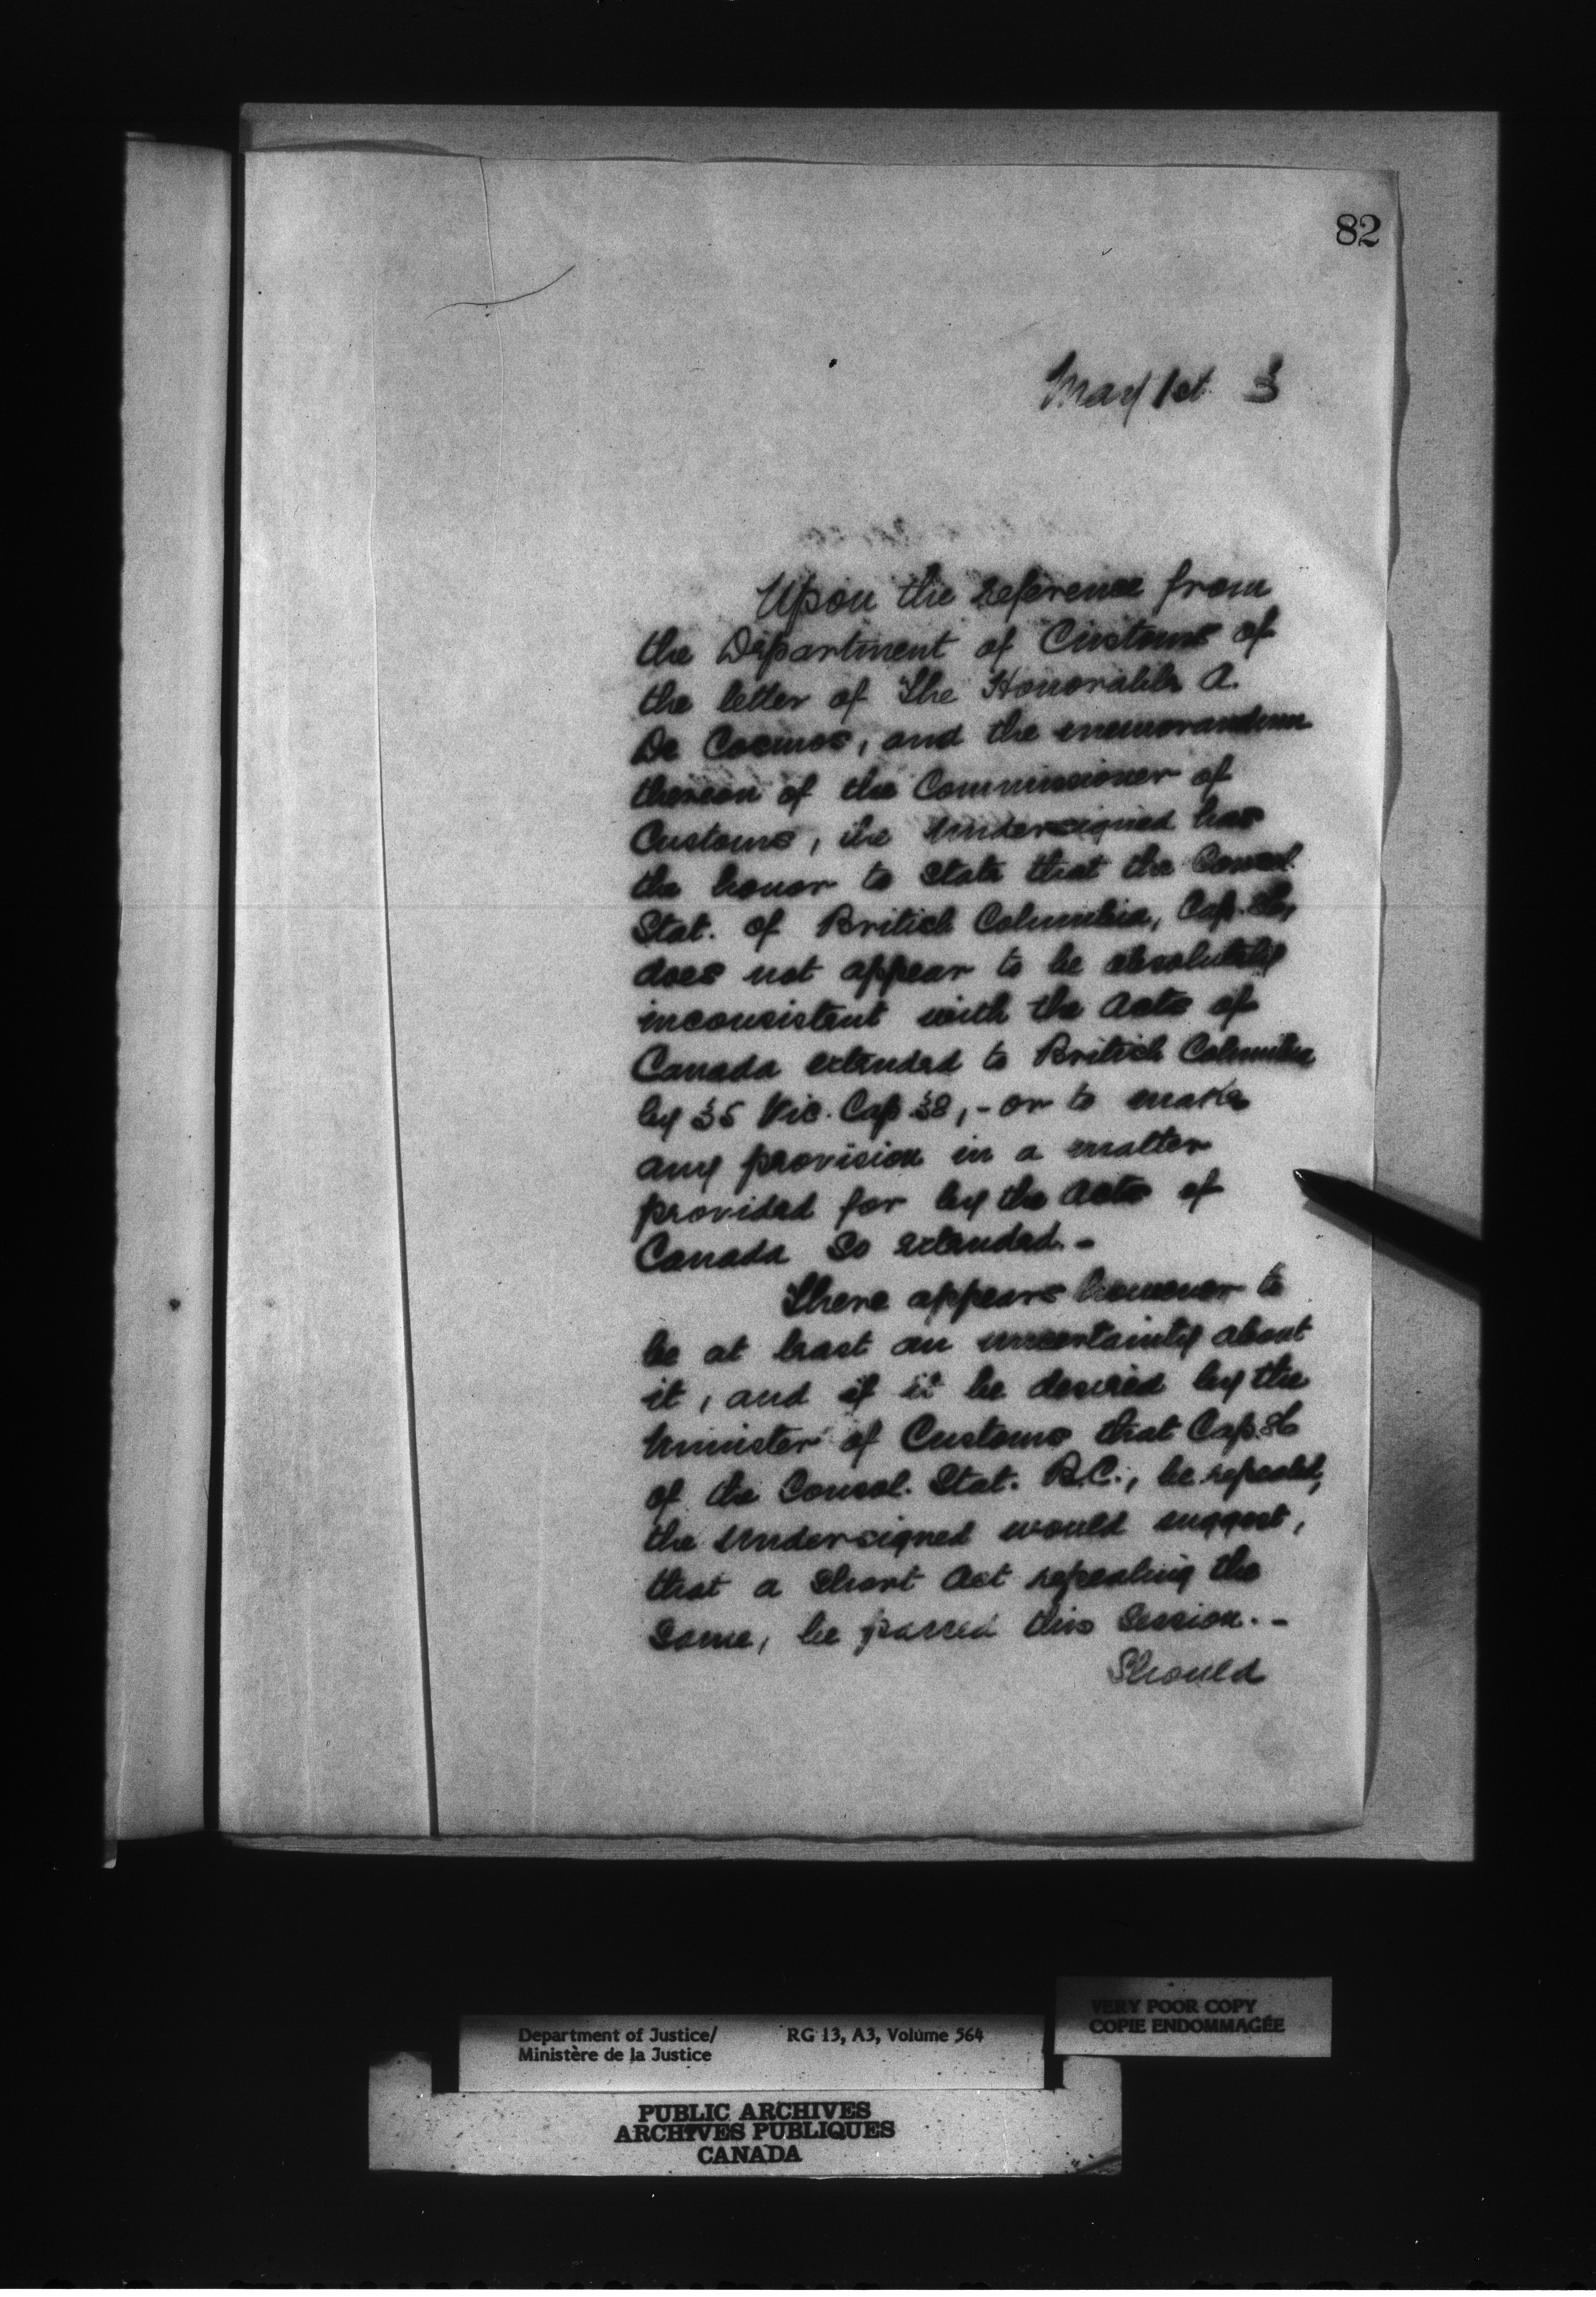 82
May 1st 3
Upon the reference from
the Department of Customs of
the letter of The Honorable A.
De Cosmos, and the memorandum
thereon of the Commissioner of
Customs, the Undersigned has
the honor to state that the Consol.
Stat. of British Columbia, Cap. 86,
does not appear to be absolutely
inconsistent with the Acts of
Canada extended to British Columbia
by 35 Vic. Cap 38, - or to make
any provision in a matter
provided for by the Acts of
Canada so extended. -
There appears however to
be at least an uncertainty about
it, and if it be desired by the
Minister of Customs that Cap. 86
of the Consol. Stat. B.C., be repealed,
the Undersigned would suggest,
that a Short Act repealing the
same, be passed this Session. -
Should
VERY POOR COPY
COPIE ENDOMMAGÉE
Department of Justice/ RG 13, A3, Volume 564
Ministère de la Justice
PUBLIC ARCHIVES
ARCHIVES PUBLIQUES
CANADA